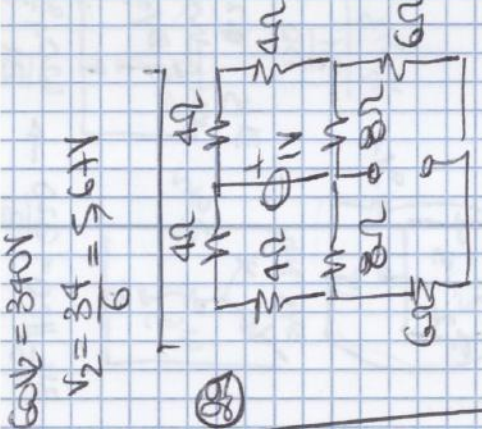 60V₂ = 340V
V₂ = 34/6 = 5,67V
89
4Ω 4Ω
4Ω + 1V 4Ω
8Ω 8Ω
6Ω 6Ω